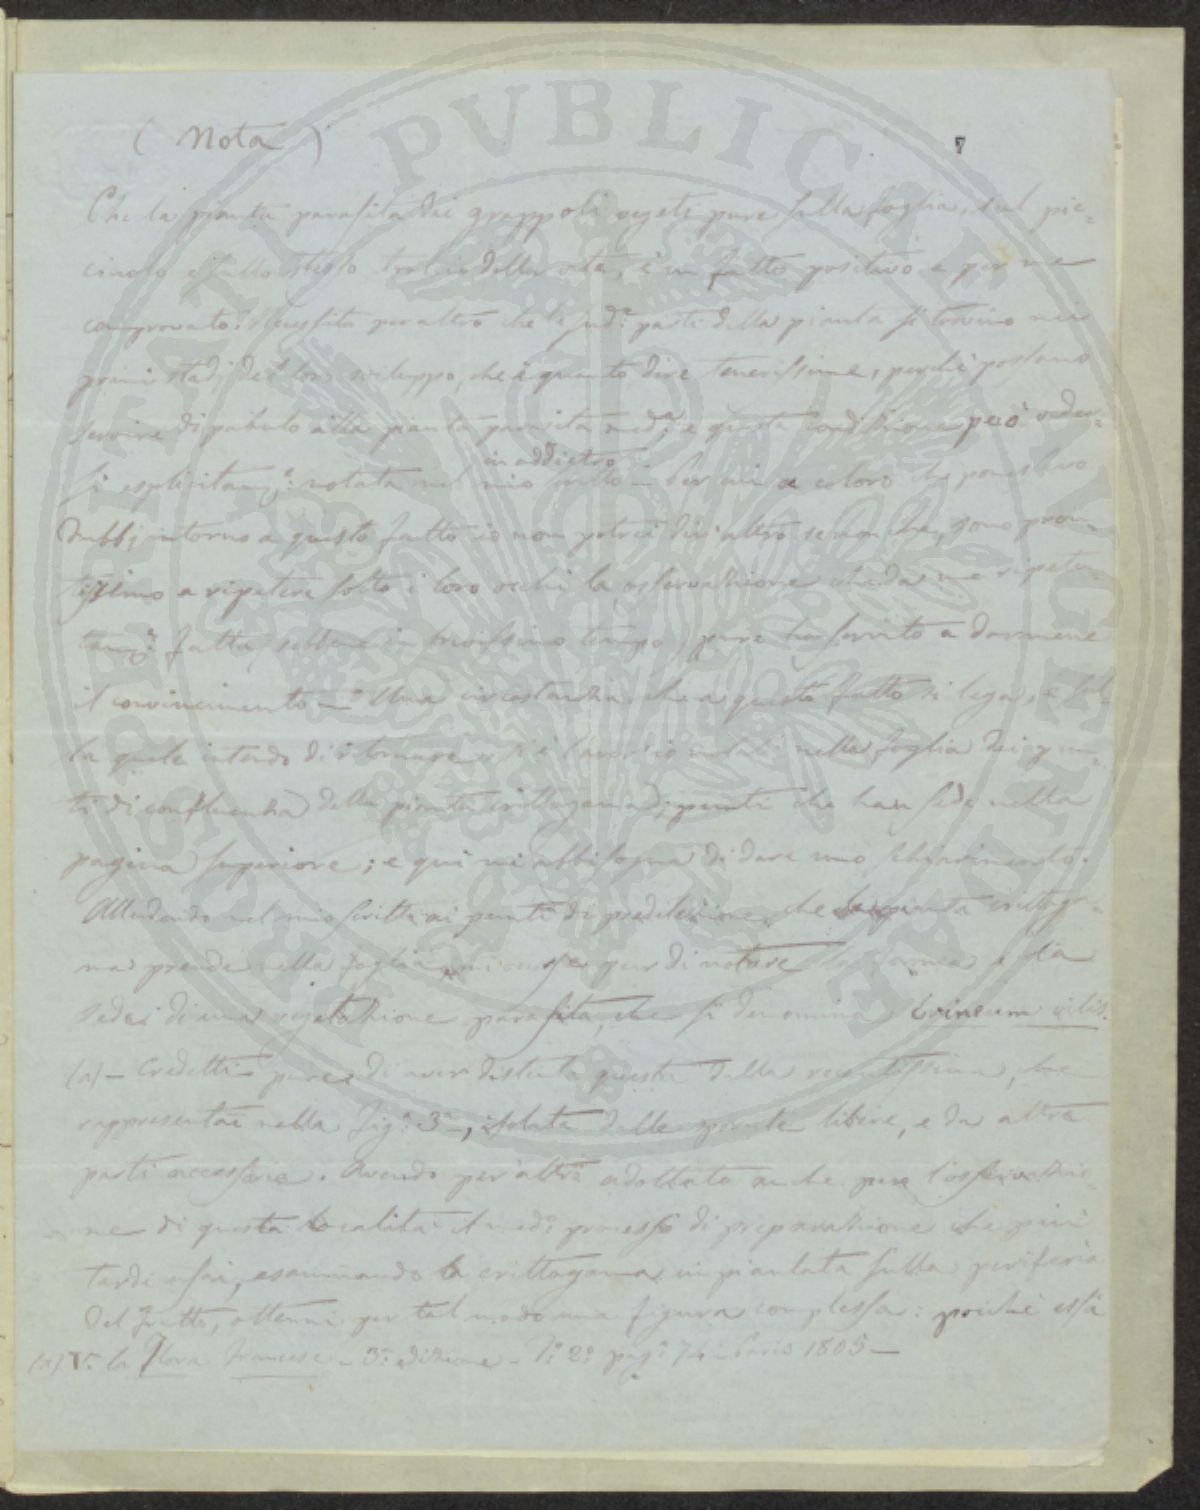 ( Nota )
7
Che la pianta parasita dei grappoli vegeti pure sulla foglia, sul pic=
ciuolo e sullo stesso tralcio della vite, è un fatto positivo e per me
comprovato: necessita per altro che le sud.e parti della pianta si trovino nei
primi stadi del loro sviluppo, che è quanto dire tenerissime, perchè possano
servire di pabulo alla pianta parasita med.a; e questa condizione può veder=
si esplicitam.e notata nel mio scritto in addietro — Per cui a coloro che
dubbj intorno a questo fatto io non potrei dir altro se non che, sono pron=
tissimo a ripetere sotto i loro occhi la osservazione che da me ripetu=
tam.e fatta, sebbene in brevissimo tempo, pure ha servito a darmene
il convincimento — Una circostanza che a questo fatto si lega, e sul=
la quale intendo di ritornare, si è nella foglia dei pun=
ti di confluenza della pianta crittogama, punti che han sede nella
pagina superiore; e qui mi abbisogna di dare uno schiarimento.
Alludendo nel mio scritto ai punti di predilezione, che la pianta crittoga=
ma prende nella foglia, mi occorse pur di notare la forma e la
sede di una vegetazione parasita, che si denomina Erineum vitis.
(a) — Credetti pure di aver distinta questa dalla recentissima,
rappresentai nella Fig.a 3.a, isolata dalle sporule libere, e da altre
parti accessorie. Avendo per altro adottato anche per l'osservazio=
ne di questa località il med.o processo di preparazione che più
tardi usai, esaminando la crittogama impiantata sulla periferia
del frutto, ottenni per tal modo una figura complessa: poichè essa
(a) V. la Flora francese — 3.a edizione — T. 2.o pag. 74 — Paris 1805 —
PVBLICAE